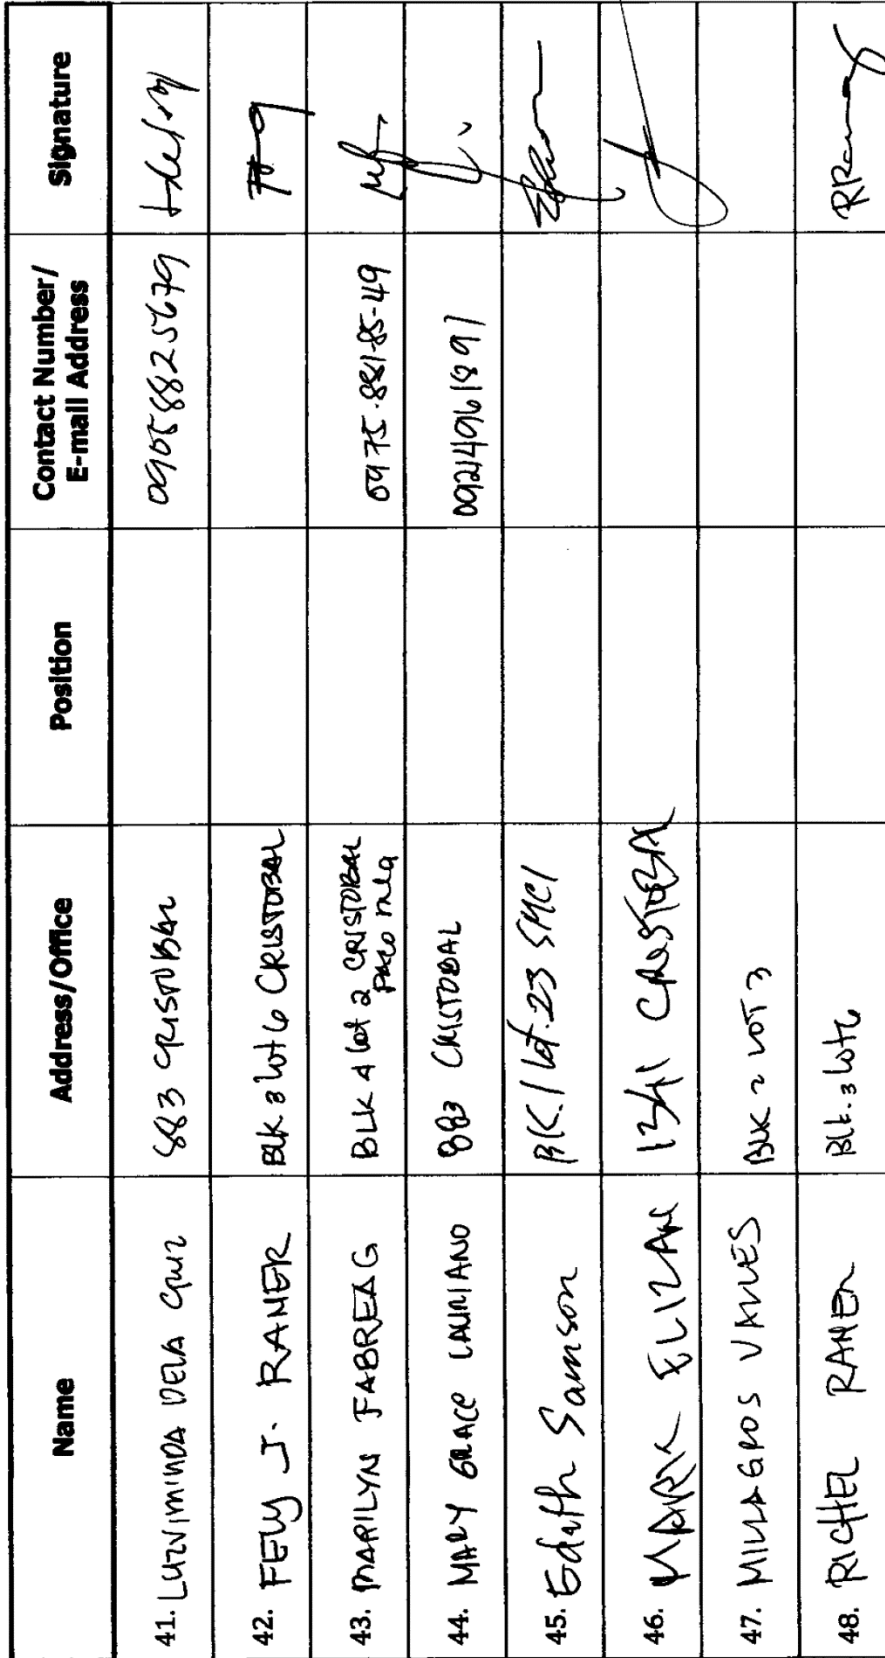 Name Address/Office Position Contact Number/ E-mail Address Signature
41. LUZVIMINDA DELA CRUZ 883 CRISTOBAL 09058825679
42. FELY J. RAMER BLK 3 Lot 6 CRISTOBAL
43. MARILYN FABREAG BLK 4 Lot 2 CRISTOBAL PACO Mla 0975-881-85-49
44. MARY GRACE LAURIANO 883 CRISTOBAL 09214961891
45. Edith Samson BK.1 lot.23 SMCI
46. MARK ELIZAN 1341 CRISTOBAL
47. MILLAGROS VALLES BLK 2 LOT 3
48. RICHEL RAMER Blk.3 Lot 6